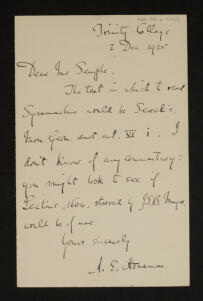 Trinity College
2 Dec. 1925
Dear Mr Semple,
The text in which to read
Symmachus would be Seeck's,
Mon. Germ. auct. ant. VI i. I
don't know of any commentary:
you might look to see if
Lectius, 1604, stored by J.E.B. Mayor
would be of use.
Yours sincerely
A. E. Housman.